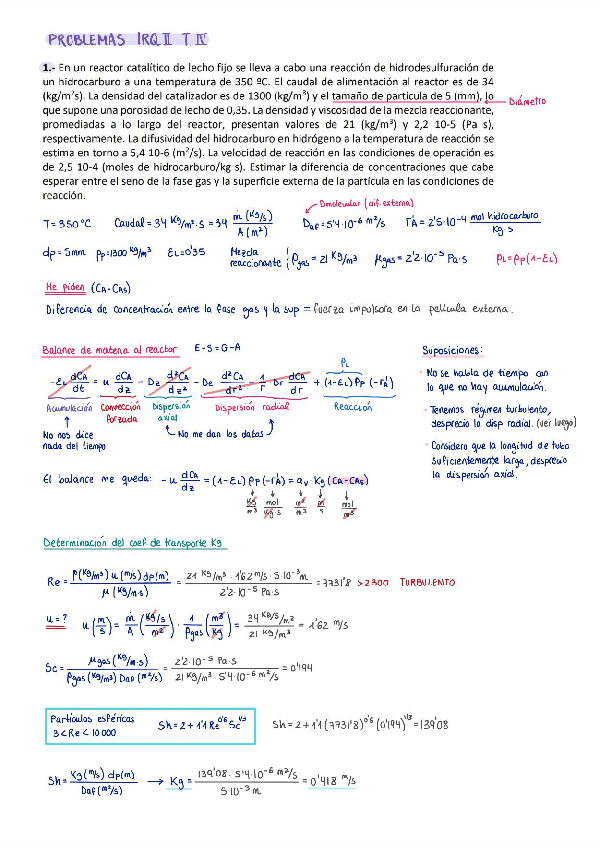 PROBLEMAS IRQ II T IV
1.- En un reactor catalítico de lecho fijo se lleva a cabo una reacción de hidrodesulfuración de
un hidrocarburo a una temperatura de 350 ºC. El caudal de alimentación al reactor es de 34
(kg/m²s). La densidad del catalizador es de 1300 (kg/m³) y el tamaño de partícula de 5 (mm), lo
Diámetro
que supone una porosidad de lecho de 0,35. La densidad y viscosidad de la mezcla reaccionante,
promediadas a lo largo del reactor, presentan valores de 21 (kg/m³) y 2,2 10-5 (Pa s),
respectivamente. La difusividad del hidrocarburo en hidrógeno a la temperatura de reacción se
estima en torno a 5,4 10-6 (m²/s). La velocidad de reacción en las condiciones de operación es
de 2,5 10-4 (moles de hidrocarburo/kg s). Estimar la diferencia de concentraciones que cabe
esperar entre el seno de la fase gas y la superficie externa de la partícula en las condiciones de
reacción.
Dmolecular (dif. externa)
T= 350 ºC Caudal = 34 Kg/m²·s = 34 ṁ (Kg/s) / A (m²) DAF = 5'4·10⁻⁶ m²/s r'A = 2'5·10⁻⁴ mol hidrocarburo / Kg·s
dp = 5mm ρp=1300 Kg/m³ εL=0'35 Mezcla reaccionante { ρgas = 21 Kg/m³ μgas = 2'2·10⁻⁵ Pa·s ρL=ρp(1-εL)
Me piden (CA-CAS)
Diferencia de concentración entre la fase gas y la sup = fuerza impulsora en la película externa.
Balance de materia al reactor E-S=G-A
Suposiciones:
ρL
-εL dCA/dt = u dCA/dz - Dz d²CA/dz² - De d²CA/dr² - 1/r Dr dCA/dr + (1-εL) ρp (-r'A)
Acumulación Convección forzada Dispersión axial Dispersión radial Reacción
No nos dice nada del tiempo
No me dan los datos
· No se habla de tiempo con
lo que no hay acumulación.
· Tenemos régimen turbulento,
desprecio la disp radial. (ver luego)
· Considero que la longitud de tubo
suficientemente larga, desprecio
la dispersión axial.
El balance me queda: -u dCA/dz = (1-εL) ρp (-r'A) = av · Kg (CA-CAS)
Kg/m³ mol/Kg·s m²/m³ m/s mol/m³
Determinación del coef. de transporte Kg
Re = ρ(Kg/m³) u (m/s) dp(m) / μ (Kg/m·s) = 21 Kg/m³ · 1'62 m/s · 5·10⁻³m / 2'2·10⁻⁵ Pa·s = 7731'8 >2300 TURBULENTO
u = ? u (m/s) = ṁ/A (Kg/s / m²) · 1/ρgas (m³/Kg) = 34 Kg/s/m² / 21 Kg/m³ = 1'62 m/s
Sc = μgas (Kg/m·s) / ρgas (Kg/m³) DAF (m²/s) = 2'2·10⁻⁵ Pa·s / 21 Kg/m³ · 5'4·10⁻⁶ m²/s = 0'194
Partículas esféricas
3<Re<10 000
Sh = 2+1'1 Re^0'6 Sc^1/3
Sh = 2+1'1 (7731'8)^0'6 (0'194)^1/3 = 139'08
Sh = Kg (m/s) dp(m) / DAF (m²/s) → Kg = 139'08 · 5'4·10⁻⁶ m²/s / 5·10⁻³ m = 0'418 m/s